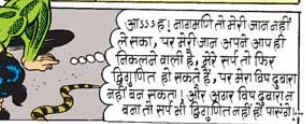 आऽऽऽह! नागमणि तो मेरी जान नहीं
ले सका, पर मेरी जान अपने आप ही
निकलने वाली है, मेरे सर्प तो फिर
द्विगुणित हो सकते हैं, पर मेरा विष दुबारा
नहीं बन सकता! और अगर विष दुबारा न
बना तो सर्प भी द्विगुणित नहीं हो पाएंगे।